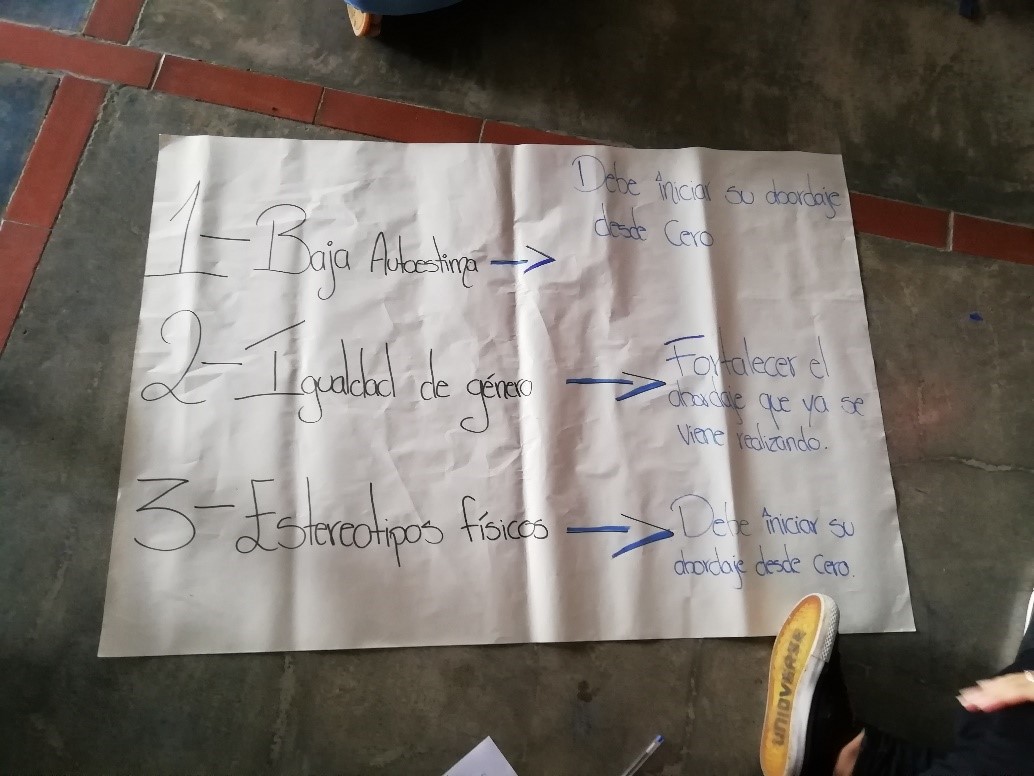 1- Baja Autoestima →
Debe iniciar su abordaje
desde Cero
2- Igualdad de género →
Fortalecer el
abordaje que ya se
viene realizando.
3- Estereotipos físicos →
Debe iniciar su
abordaje desde Cero.
UNIDVERSE